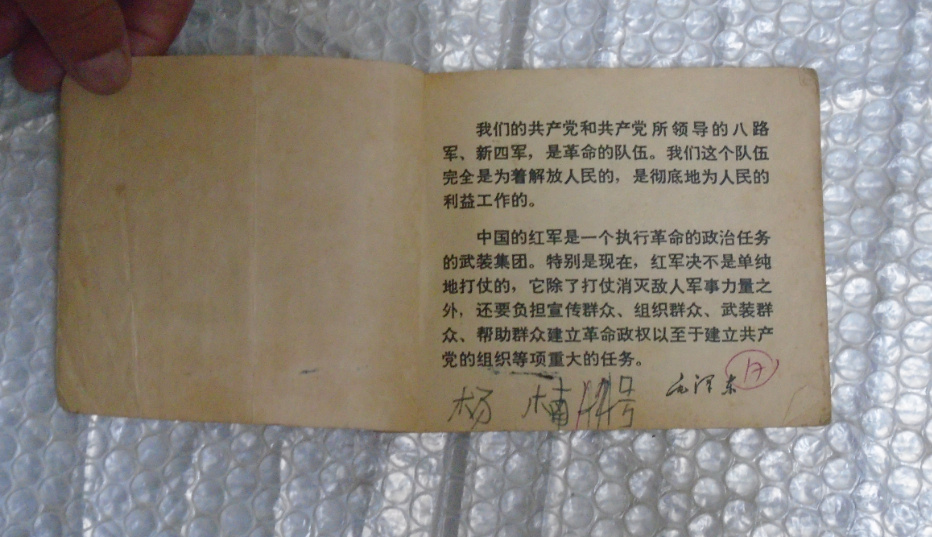 我们的共产党和共产党所领导的八路
军、新四军，是革命的队伍。我们这个队伍
完全是为着解放人民的，是彻底地为人民的
利益工作的。
中国的红军是一个执行革命的政治任务
的武装集团。特别是现在，红军决不是单纯
地打仗的，它除了打仗消灭敌人军事力量之
外，还要负担宣传群众、组织群众、武装群
众、帮助群众建立革命政权以至于建立共产
党的组织等项重大的任务。
毛泽东
17
杨 楠
号